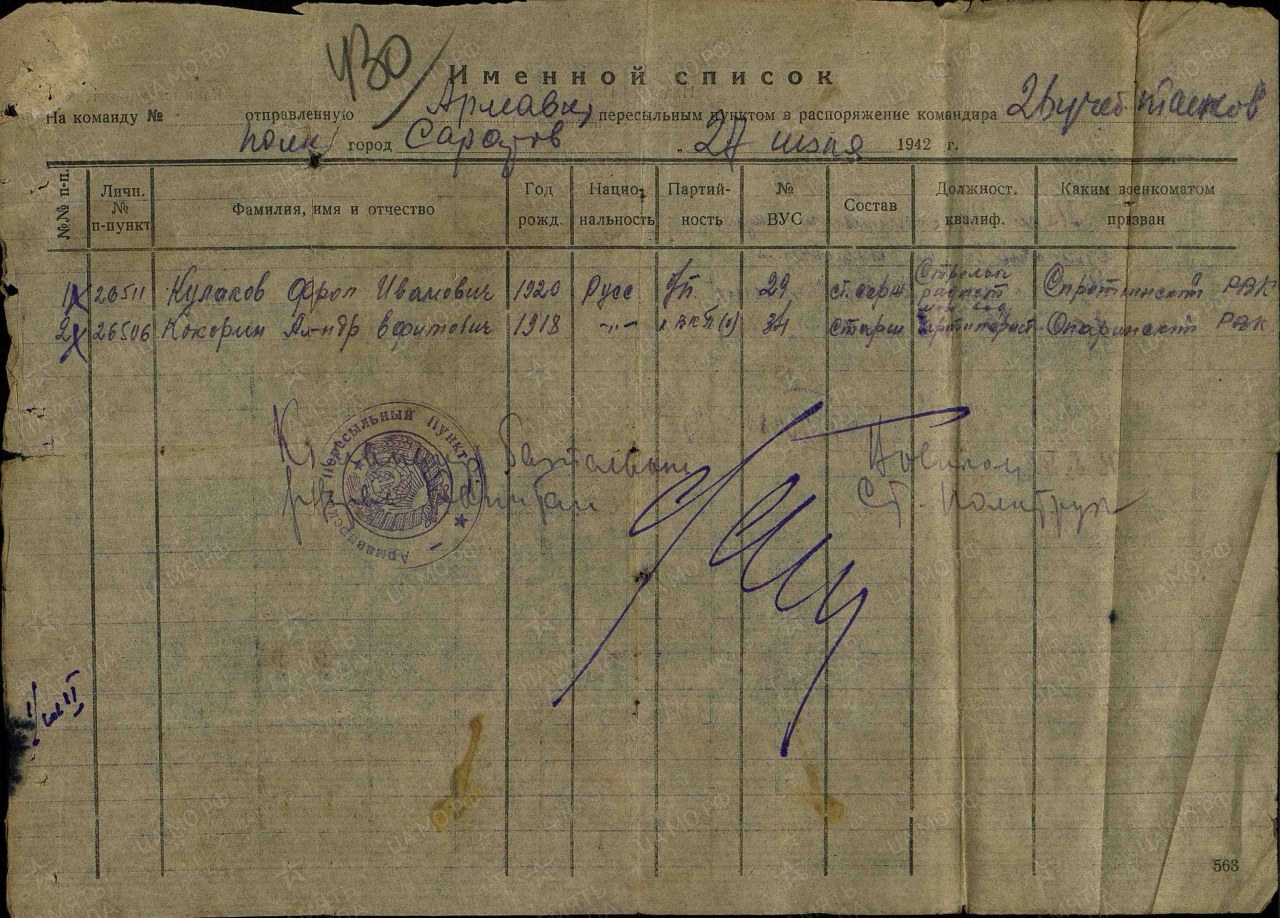 430
Именной список
На команду № отправленную Армавир пересыльным пунктом в распоряжение командира 26 учеб танков
полк город Саратов „ 27 июля 1942 г.
№№ п-п. Личн. № п-пункт Фамилия, имя и отчество Год рожд. Нацио-нальность Партий-ность № ВУС Состав Должност. квалиф. Каким военкоматом призван
1 26511 Кулаков Фрол Иванович 1920 Русс б/п 29 ст. серж Стрелок радист РВК
2 26506 Кокорин Ал-ндр 1918 -"- ВКП(б) 34 старш Опаринский РВК
Армавирский Пересыльный Пункт
Ст. Политрук
563
ЦАМО.РФ
ПАМЯТЬ НАРОДА